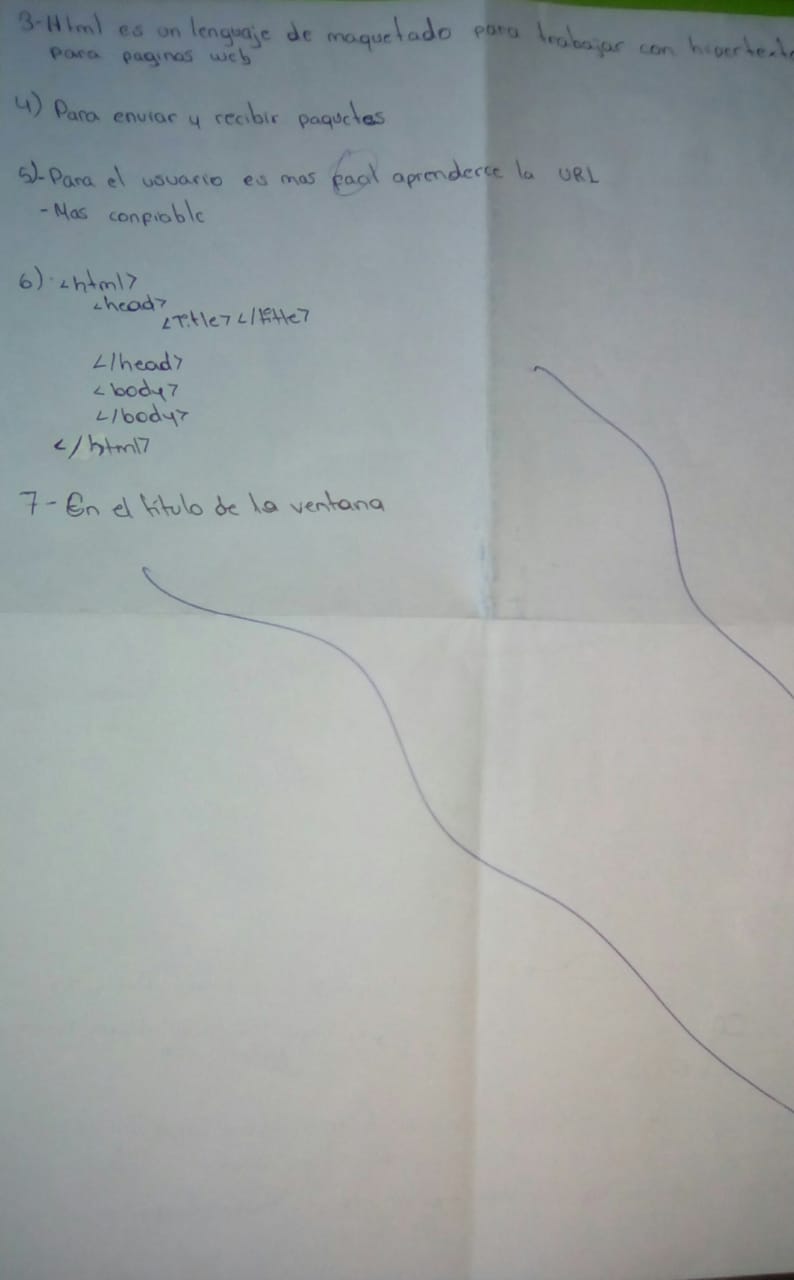 3-Html es un lenguaje de maquetado para trabajar con hipertexto
para paginas web
4) Para enviar y recibir paquetes
5)-Para el usuario es mas facil aprenderce la URL
- Mas confiable
6) <html>
<head>
<Title></title>
</head>
<body>
</body>
</html>
7- En el título de la ventana